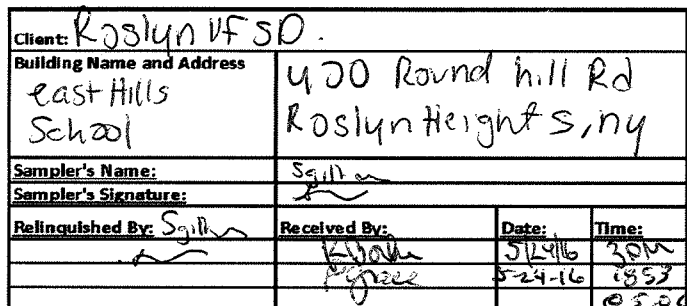 Client: Roslyn UFSD.
Building Name and Address
East Hills
School
400 Round hill Rd
Roslyn Heights, ny
Sampler's Name:
Sampler's Signature:
Relinquished By:
Received By:
Date:
Time:
5/24/16
3PM
5-24-16
1853